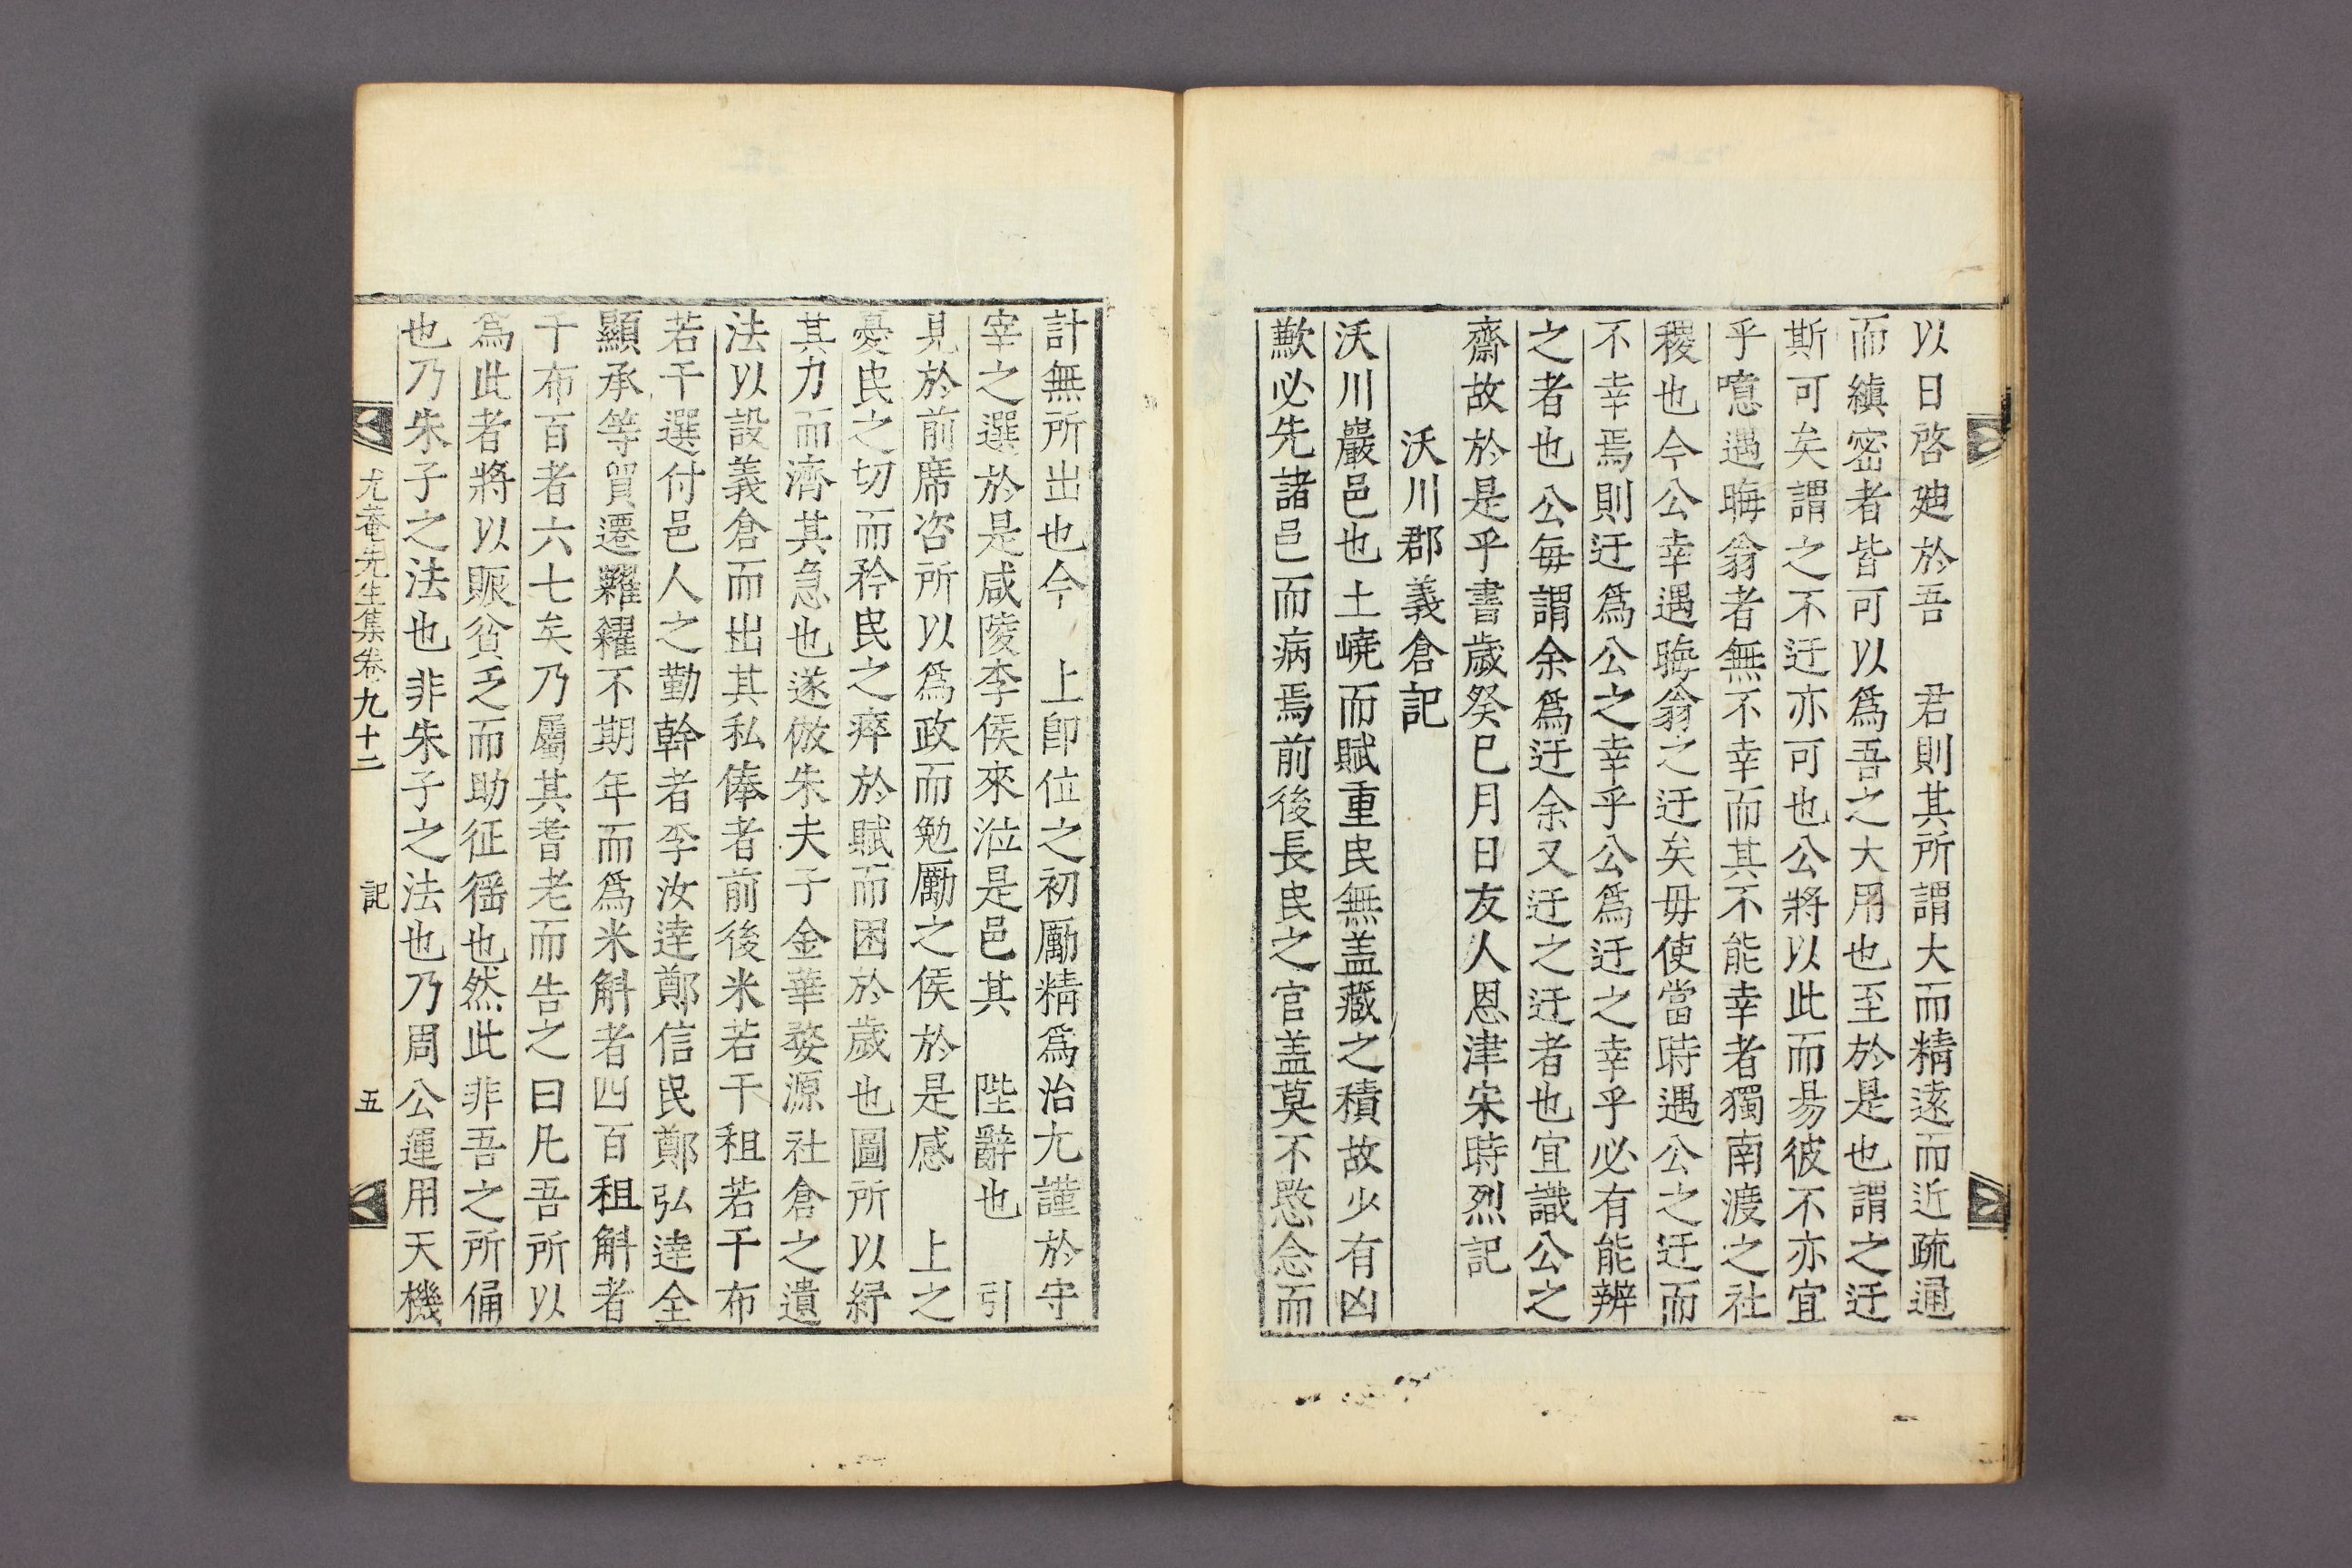 以日啓迪於吾　君則其所謂大而精遠而近疏通
而縝密者皆可以爲吾之大用也至於是也謂之迂
斯可矣謂之不迂亦可也公將以此而昜彼不亦宜
乎噫遇晦翁者無不幸而其不能幸者獨南渡之社
稷也今公幸遇晦翁之迂矣毋使當時遇公之迂而
不幸焉則迂爲公之幸乎公爲迂之幸乎必有能辨
之者也公每謂余爲迂余又迂之迂者也宜識公之
齋故於是乎書歲癸巳月日友人恩津宋時烈記
沃川郡義倉記
沃川巖邑也土嶢而賦重民無盖藏之積故少有凶
歉必先諸邑而病焉前後長民之官盖莫不愍念而
計無所出也今　上卽位之初厲精爲治尤謹於守
宰之選於是咸陵李侯來涖是邑其　陛辭也　引
見於前席咨所以爲政而勉厲之侯於是感　上之
憂民之切而矜民之瘁於賦而困於歲也圖所以紓
其力而濟其急也遂倣朱夫子金華婺源社倉之遺
法以設義倉而出其私俸者前後米若干租若干布
若干選付邑人之勤幹者李汝達鄭信民鄭弘達全
顯承等貿遷糶糴不期年而爲米斛者四百租斛者
千布百者六七矣乃屬其耆老而告之曰凡吾所以
爲此者將以賑貧乏而助征徭也然此非吾之所俑
也乃朱子之法也非朱子之法也乃周公運用天機
尤菴先生集卷九十二　記　五